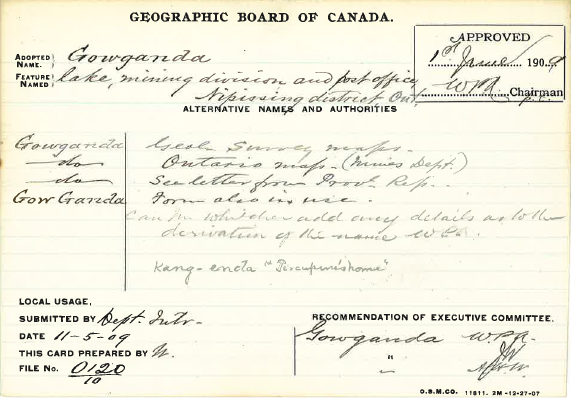 GEOGRAPHIC BOARD OF CANADA.
APPROVED
1st June 1909
WPA Chairman
ADOPTED NAME. Gowganda
FEATURE NAMED lake, mining division and post office
Nipissing district Ont.
ALTERNATIVE NAMES AND AUTHORITIES
Gowganda Geol. Survey maps.
do Ontario map - (Mines Dept.)
do See letter from Provl. Rep.
Gow Ganda Form also in use.
Can Mr Whitcher add any details as to the
derivation of the name WPA.
Kang-enda "Porcupine's home"
LOCAL USAGE,
SUBMITTED BY Dept. Intr.
DATE 11-5-09
THIS CARD PREPARED BY W.
FILE No. 0120
10
RECOMMENDATION OF EXECUTIVE COMMITTEE.
Gowganda WPA.
"
"
O.B.M.CO. 11811. 2M-12-27-07